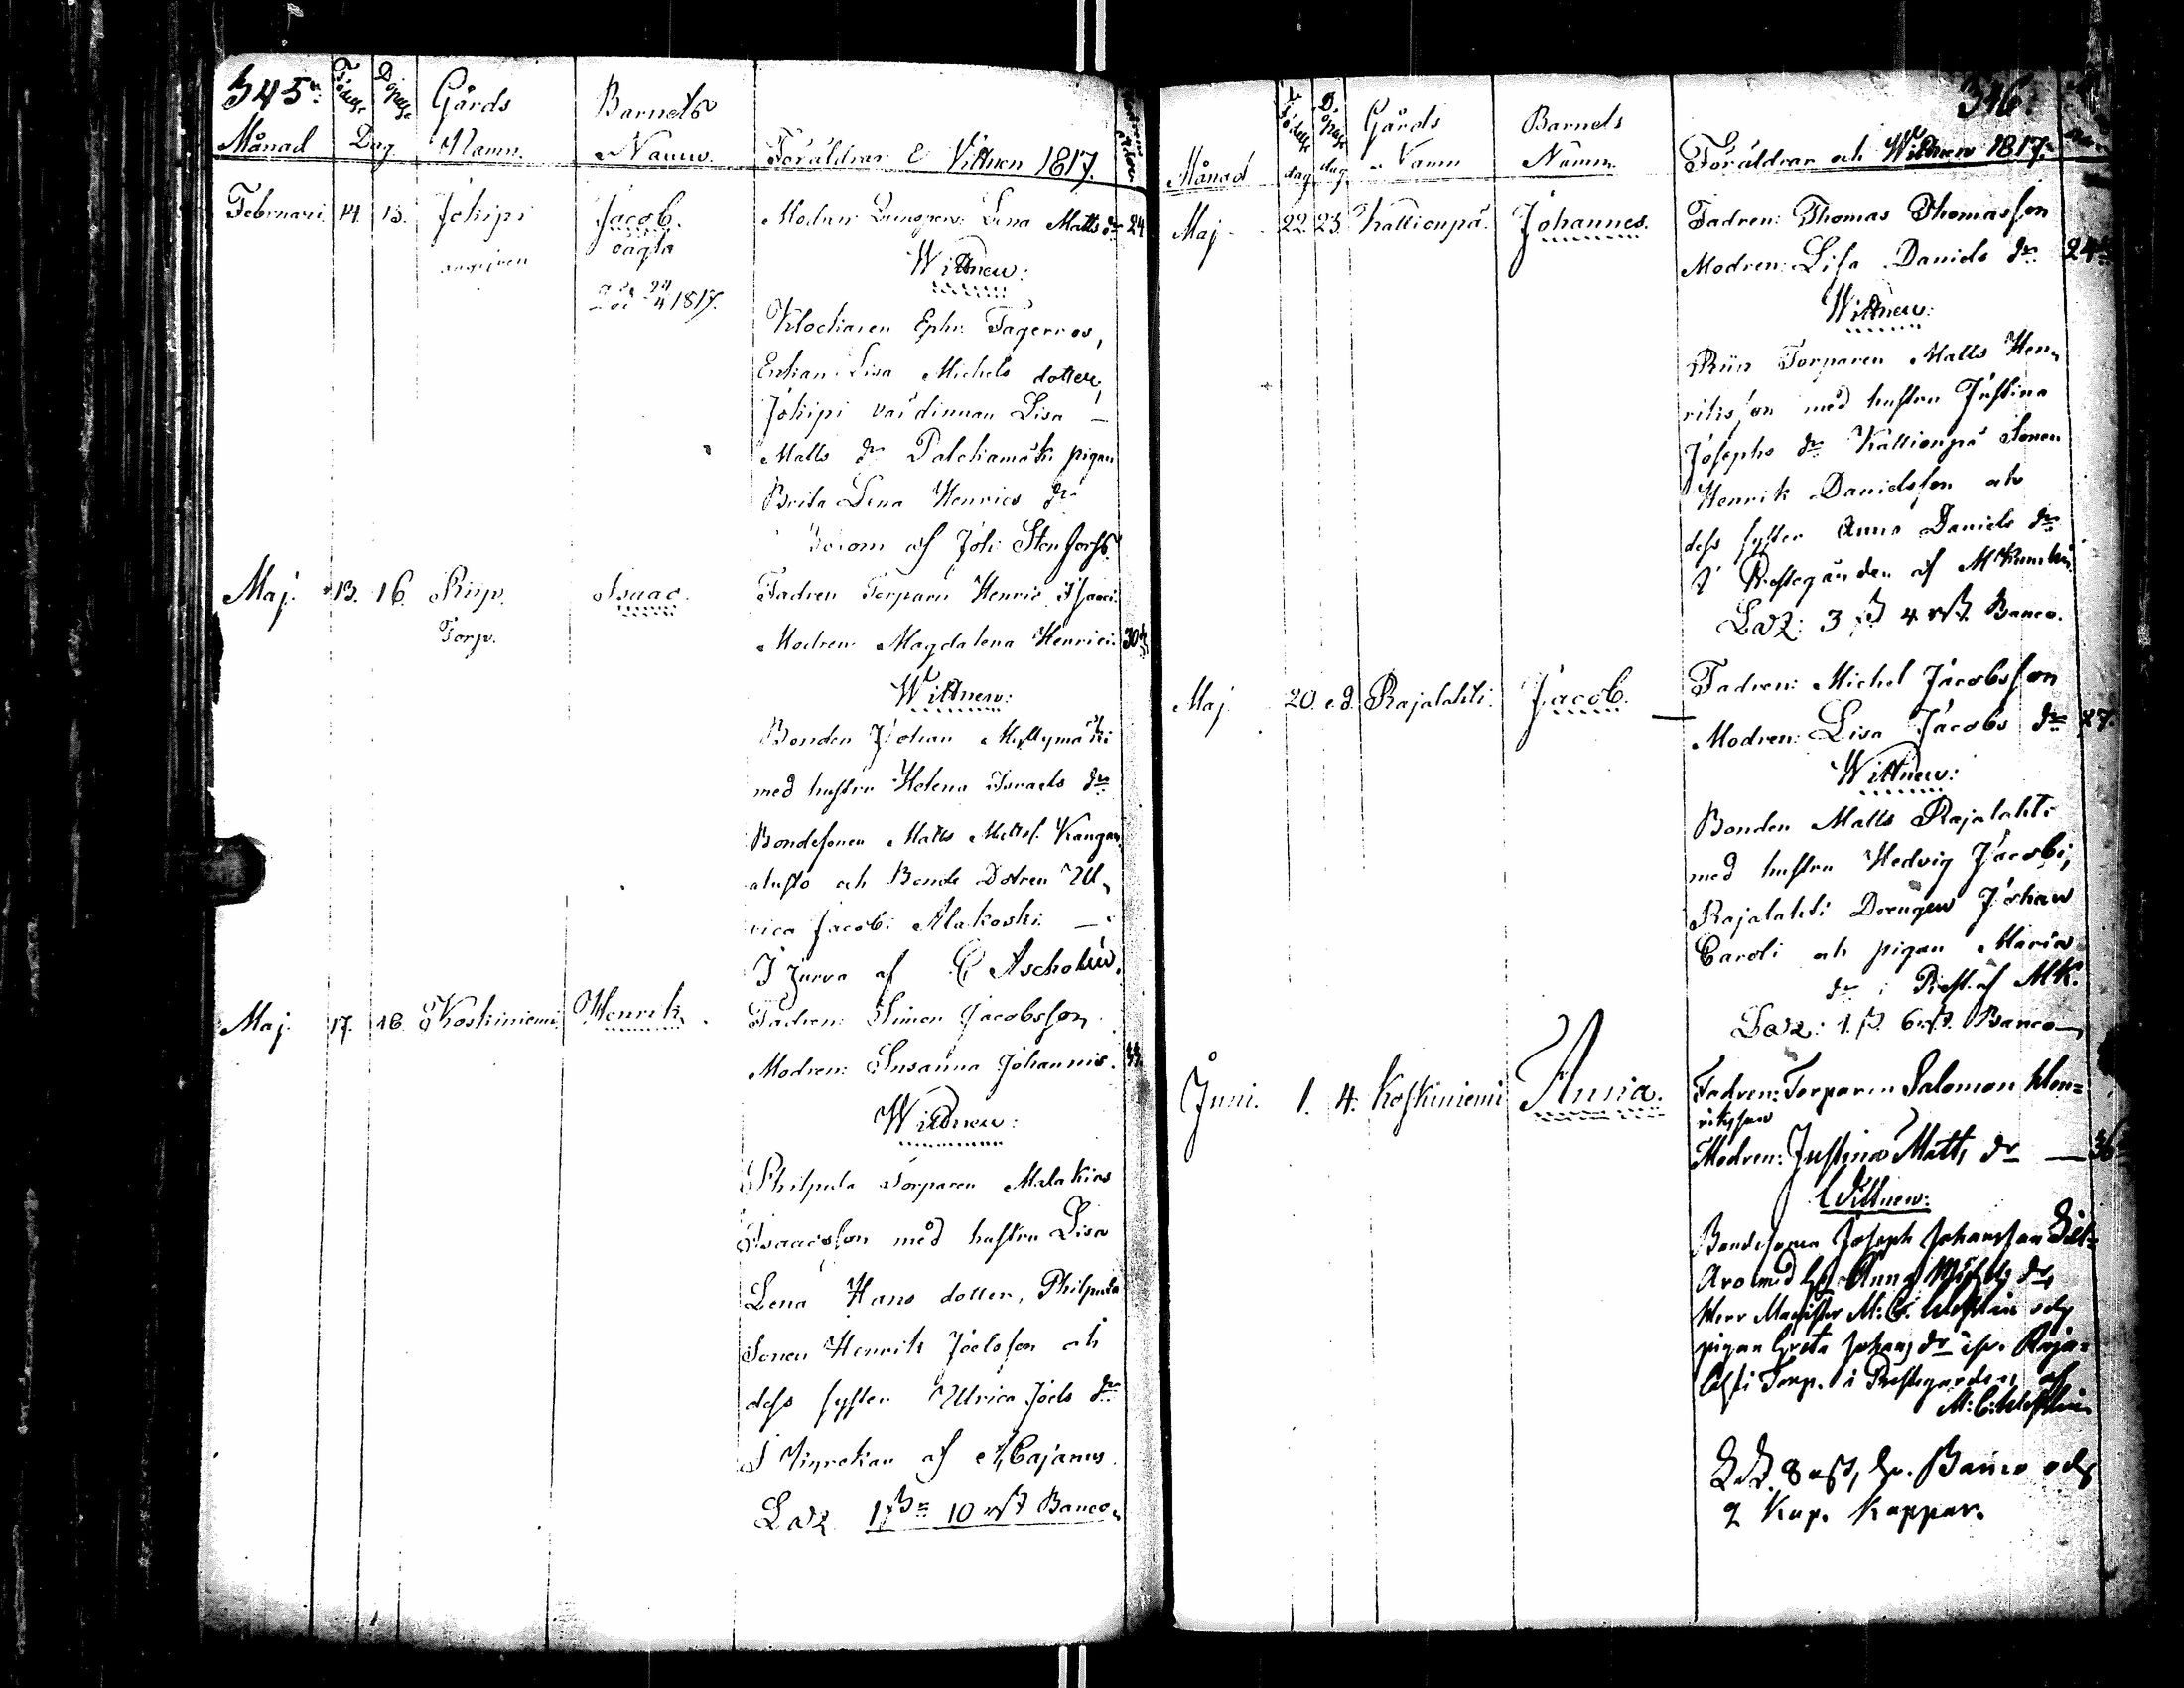 345.
Månad Födelse Döpelse Dag Gårds Namn. Barnets Namn. Föräldrar & Vittnen 1817. Modrens Ålder
Februari 14. 15. Jokipi Jacob. Modren Lena Matts dr 24
angifven oägta
Wittnen:
död 24/4 1817.
Klockaren Ephr: Fagerroos,
Enkan Lisa Michels dotter,
Jokipi värdinnan Lisa
Matts dr Palokamäki pigan
Brita Lena Henrics dr
af Joh: Stenfors.
Maj. 13. 16. Riip. Isaac. Fadren Torparn Henric Isaaci.
Torp. Modren Magdalena Henrici. 30
Wittnen:
Bonden Johan Myllymäki
med hustru Helena Israels dr
Bondesonen Matts Mattss. Kangas
aluhto och Bonde Dotren Ul,
rica Jacobi Alakoski. —
I Jurva af C Ascholin.
Maj. 17. 18. Koskiniemi Henrik. Fadren: Simon Jacobsson.
Modren: Susanna Johannis.
Wittnen:
Philpula Torparen Malakias
Isaacsson med hustru Lisa
Lena Hans dotter, Philpula
Sonen Henrik Joelsson och
dess syster Ulrica Joels dr
I Kyrckan af Cajanus.
10 Banco.
346.
Månad Födelse dag Döpelse dag Gårds Namn Barnets Namn. Föräldrar och Wittnen 1817.
Maj 22. 23 Kallionpä. Johannes. Fadren: Thomas Thomasson
Modren: Lisa Daniels dr 24
Wittnen:
Riip Torparen Matts Hen,
riksson med hustru Justina
Josephs dr Kallionpä Sonen
Henrik Danielsson och
dess syster Anna Daniels dr
I Prestegården af
3 4 Banco.
Maj 20. e.d. Rajalahti. Jacob. Fadren: Michel Jacobsson
Modren: Lisa Jacobs dr 27.
Wittnen:
Bonden Matts Rajalahti
med hustru Hedvig Jacobi,
Rajalahti Drengen Johan
Caroli och pigan Maria
dr i Prest. af MK.
1. 6 Banco
Juni. 1. 4. Koskiniemi Anna. Fadren: Torparen Salomon Hen=
riksson
Modren: Justina Matts dr — 36
Wittnen:
Bondesonen Joseph Johansson
Aro med Anna Michels dr,
Herr Magister M: C. och
pigan Greta Johans dr Raja=
lahti Torp. i Prestegården, af
M: C:
8 Banco och
2 Kap. Kappar.